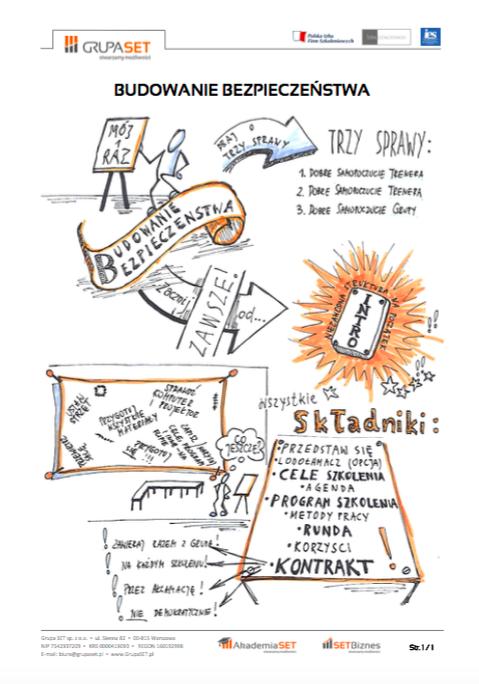 GRUPASET
stwarzamy możliwości
Polska Izba
Firm Szkoleniowych
BUDOWANIE BEZPIECZEŃSTWA
MÓJ
1
RAZ
TRZY SPRAWY
TRZY SPRAWY:
1. DOBRE SAMOPOCZUCIE TRENERA
2. DOBRE SAMOPOCZUCIE TRENERA
3. DOBRE SAMOPOCZUCIE GRUPY
BUDOWANIE
BEZPIECZEŃSTWA
ZAWSZE!
od...
STRUKTURA NA POCZĄTEK
INTRO
!!
SPRAWDŹ
KOMPUTER
I PROJEKTOR
PRZYGOTUJ
WSZYSTKIE
MATERIAŁY
CO
JESZCZE?
WSZYSTKIE
SKŁADNIKI:
• PRZEDSTAW SIĘ
• LODOŁAMACZ (OPCJA)
• CELE SZKOLENIA
• AGENDA
• PROGRAM SZKOLENIA
• METODY PRACY
• RUNDA
• KORZYŚCI
• KONTRAKT !
! ZAWIERAJ RAZEM Z GRUPĄ!
! NA KAŻDYM SZKOLENIU!
! PRZEZ AKLAMACJĘ!
! NIE DEMOKRATYCZNIE!
Grupa SET sp. z o.o. • ul. Sienna 82 • 00-815 Warszawa
NIP 7542937209 • KRS 0000419093 • REGON 160192998
E-mail: biuro@grupaset.pl • www.GrupaSET.pl
AkademiaSET
SETBiznes
Str. 1 / 1